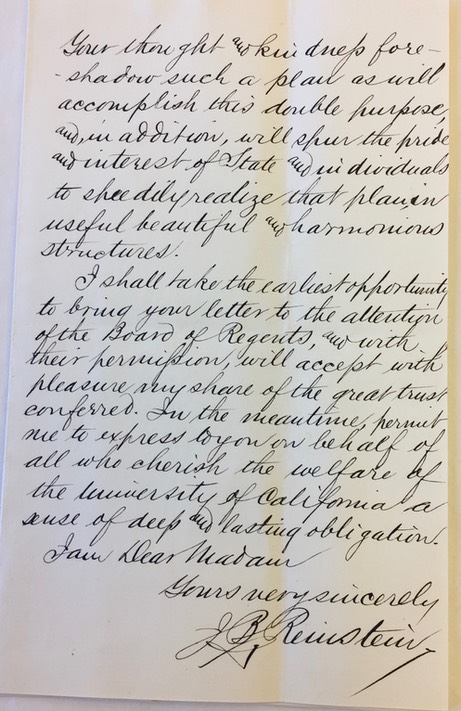 Your thought and kindness fore-
-shadow such a plan as will
accomplish this double purpose,
and, in addition, will spur the pride
and interest of State and individuals
to speedily realize that plan in
useful beautiful and harmonious
structures.
I shall take the earliest opportunity
to bring your letter to the attention
of the Board of Regents, and with
their permission, will accept with
pleasure my share of the great trust
conferred. In the meantime, permit
me to express to you on behalf of
all who cherish the welfare of
the University of California a
sense of deep and lasting obligation.
I am Dear Madam
Yours very sincerely
J. B. Reinstein